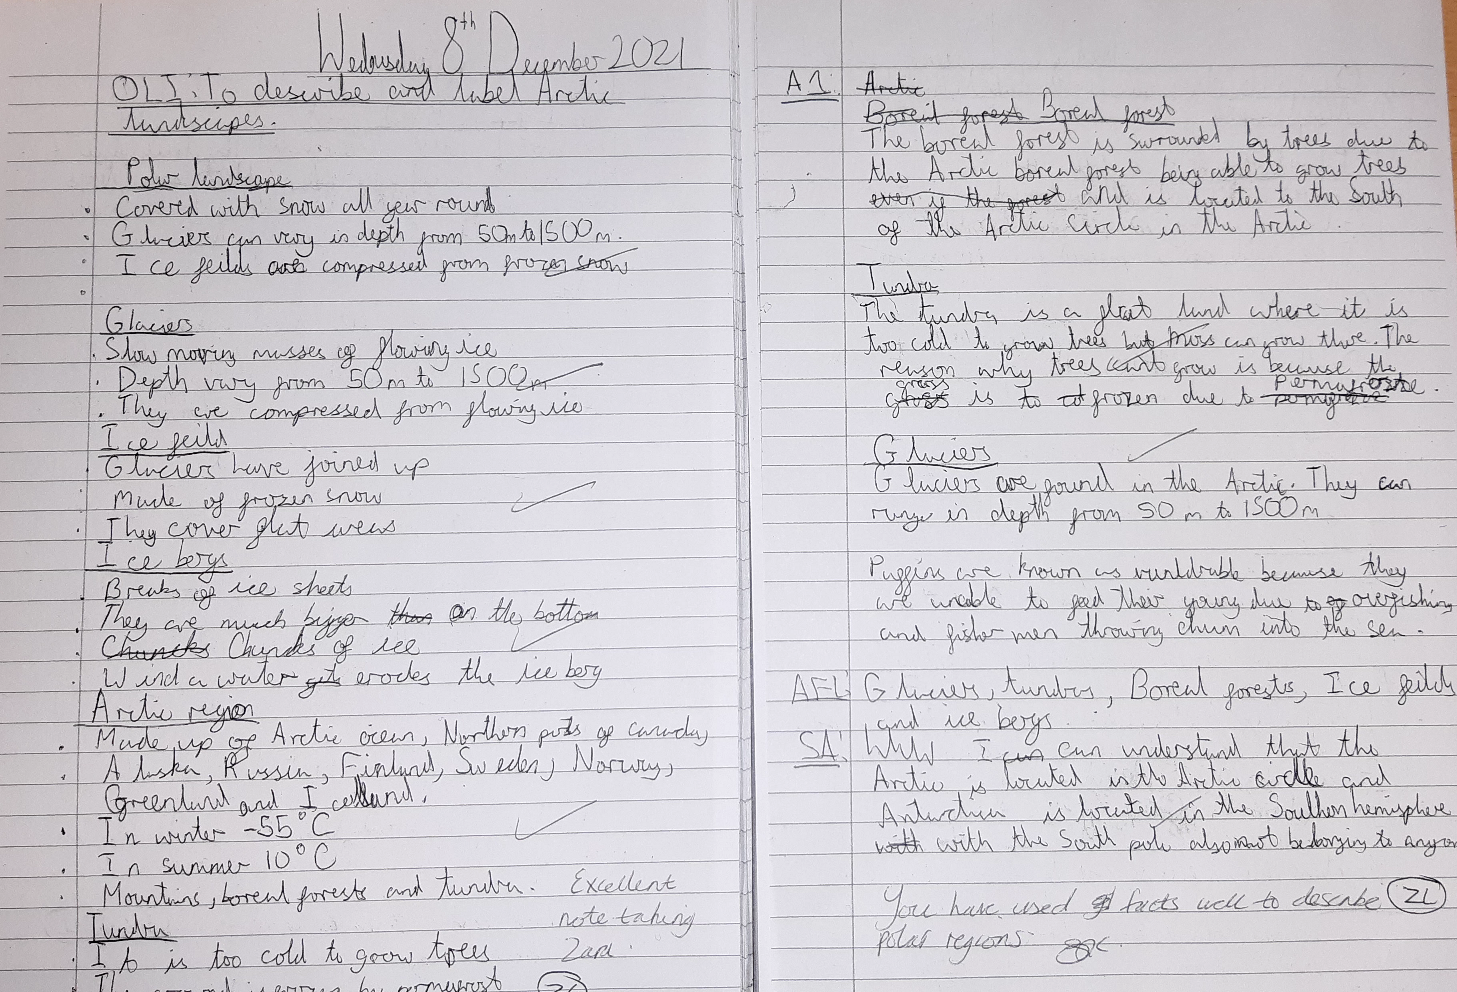 Wednesday 8th December 2021
OLI: To describe and label Arctic
landscapes.
Polar landscape
Covered with snow all year round
Glaciers can vary in depth from 50m to 1500m.
Ice feilds are compressed from frozen snow
Glaciers
Slow moving masses of flowing ice
Depth vary from 50m to 1500m
They are compressed from flowing ice
Ice feild
Glaciers have joined up
Made of frozen snow
They cover flat areas
Ice bergs
Breaks of ice sheets
They are much bigger than on the bottom
Chuncks Chuncks of ice
Wind a water erodes the ice berg
Arctic region
Made up of Arctic ocean, Northern parts of canada,
Alaska, Russia, Finland, Sweden, Norway,
Greenland and Iceland.
In winter -55°C
In summer 10°C
Mountains, boreal forests and tundra.
Excellent
note taking
Zara.
Tundra
It is too cold to grow trees
is frozen by permafrost
A1:
Arctic
Boreil forest Boreal forest
The boreal forest is surrounded by trees due to
the Arctic boreal forest being able to grow trees
even if the forest and is located to the South
of the Arctic Circle in the Arctic.
Tundra
The tundra is a flat land where it is
too cold to grow trees but moss can grow there. The
reason why trees cant grow is because the
grass is to frozen due to
Glaciers
Glaciers are found in the Arctic. They can
range in depth from 50m to 1500m
Puffins are known as because they
are unable to feed their young due to overfishing
and fisher men throwing chum into the sea.
AFL Glacier, tundras, Boreal forests, Ice feilds
and ice bergs.
SA: WWW I can can understand that the
Arctic is located in the Arctic circle and
Antarctica is located in the Southern hemisphere
with with the South pole also not belonging to
You have used facts well to describe ZL
polar regions.